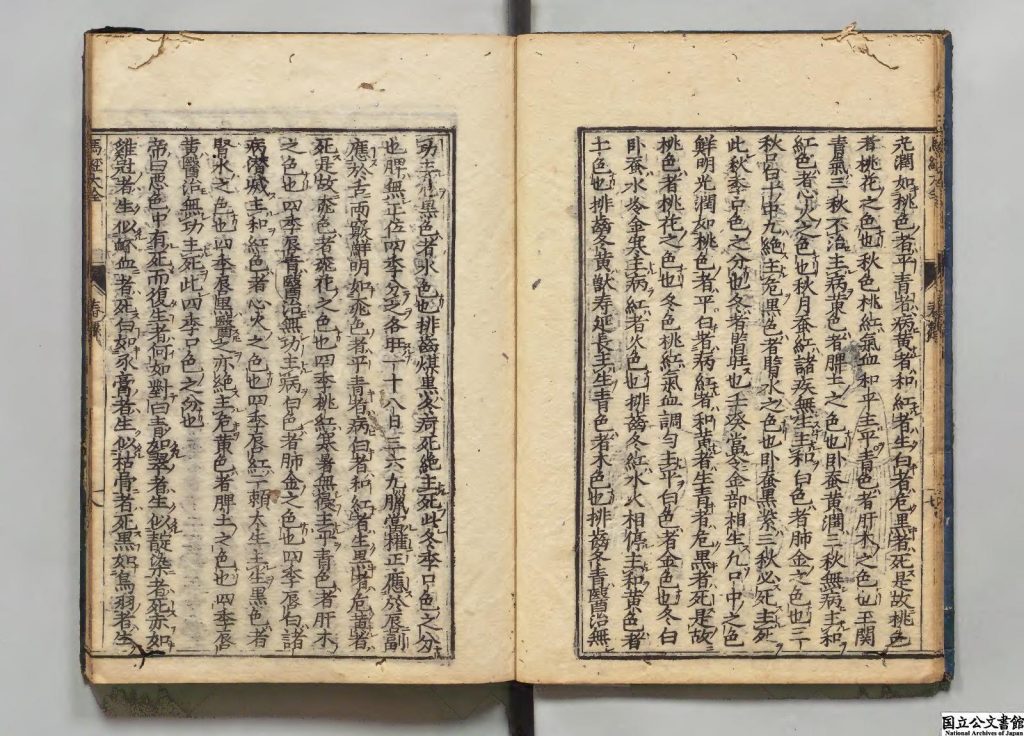 光潤如桃色者平青者病黄者和紅者生白者危黒者死是故桃色
者桃花之色也秋色桃紅氣血和平主平青色者肝木之色也玉関
青氣三秋不治主病黄色者脾土之色也卧蚕黄潤三秋無病主和
紅色者心火之色也秋月蚕紅諸疾無生主和白色者肺金之色也三
秋口白十中九絶主危黒色者腎水之色也卧蚕黒紫三秋必死主死
此秋季口色之分也冬者腎旺也壬癸當令金部相生九口中之色
鮮明光潤如桃色者平白者病紅者和黄者生青者危黒者死是故
桃色者桃花之色也冬色桃紅氣血調匀主平白色者金色也冬白
卧蚕水冷金寒主病紅者火色也排齒冬紅水火相停主和黄色者
土色也排齒冬黄獣寿延長主生青色者木色也排齒冬青醫治無
功主危黒色者水色也排齒煤黒冬前死絶主死此冬季口色之分
也脾無正位四季分之各旺一十八日三六九臘當權正應於唇副
應於舌両竅鮮明如桃色者平青者病白者和紅者生黒者危黄者
死是故桃色者桃花之色也四季桃紅寒暑無侵主平青色者肝木
之色也四季唇青醫治無功主病白色者肺金之色也四季唇白諸
病潜藏主和紅色者心火之色也四季唇紅一丁頼太生主生黒色者
腎水之色也四季唇黒醫之亦絶主危黄色者脾土之色也四季唇
黄醫治無功主死此四季口色之分也
帝曰惡色中有死而復生者何如對曰青如翠者生似靛染者死赤如
雞冠者生似衃血者死白如豕膏者生似枯骨者死黒如烏羽者生
馬經大全
春集
国立公文書館
National Archives of Japan